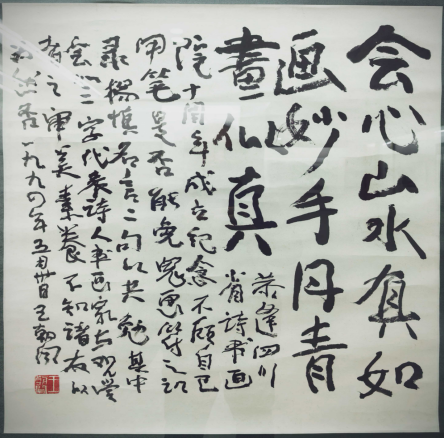 会心山水真如
画妙手丹青
畫似真
恭逢四川
省诗书画
院十周年成立纪念不顾自己
用笔是否能免鬼画符之讥
录杨慎名言二句以共勉其中
会心二字代表诗人书画家与观赏
者之审美素养不知诸友以
为然否一九九四年五月廿日王朝闻